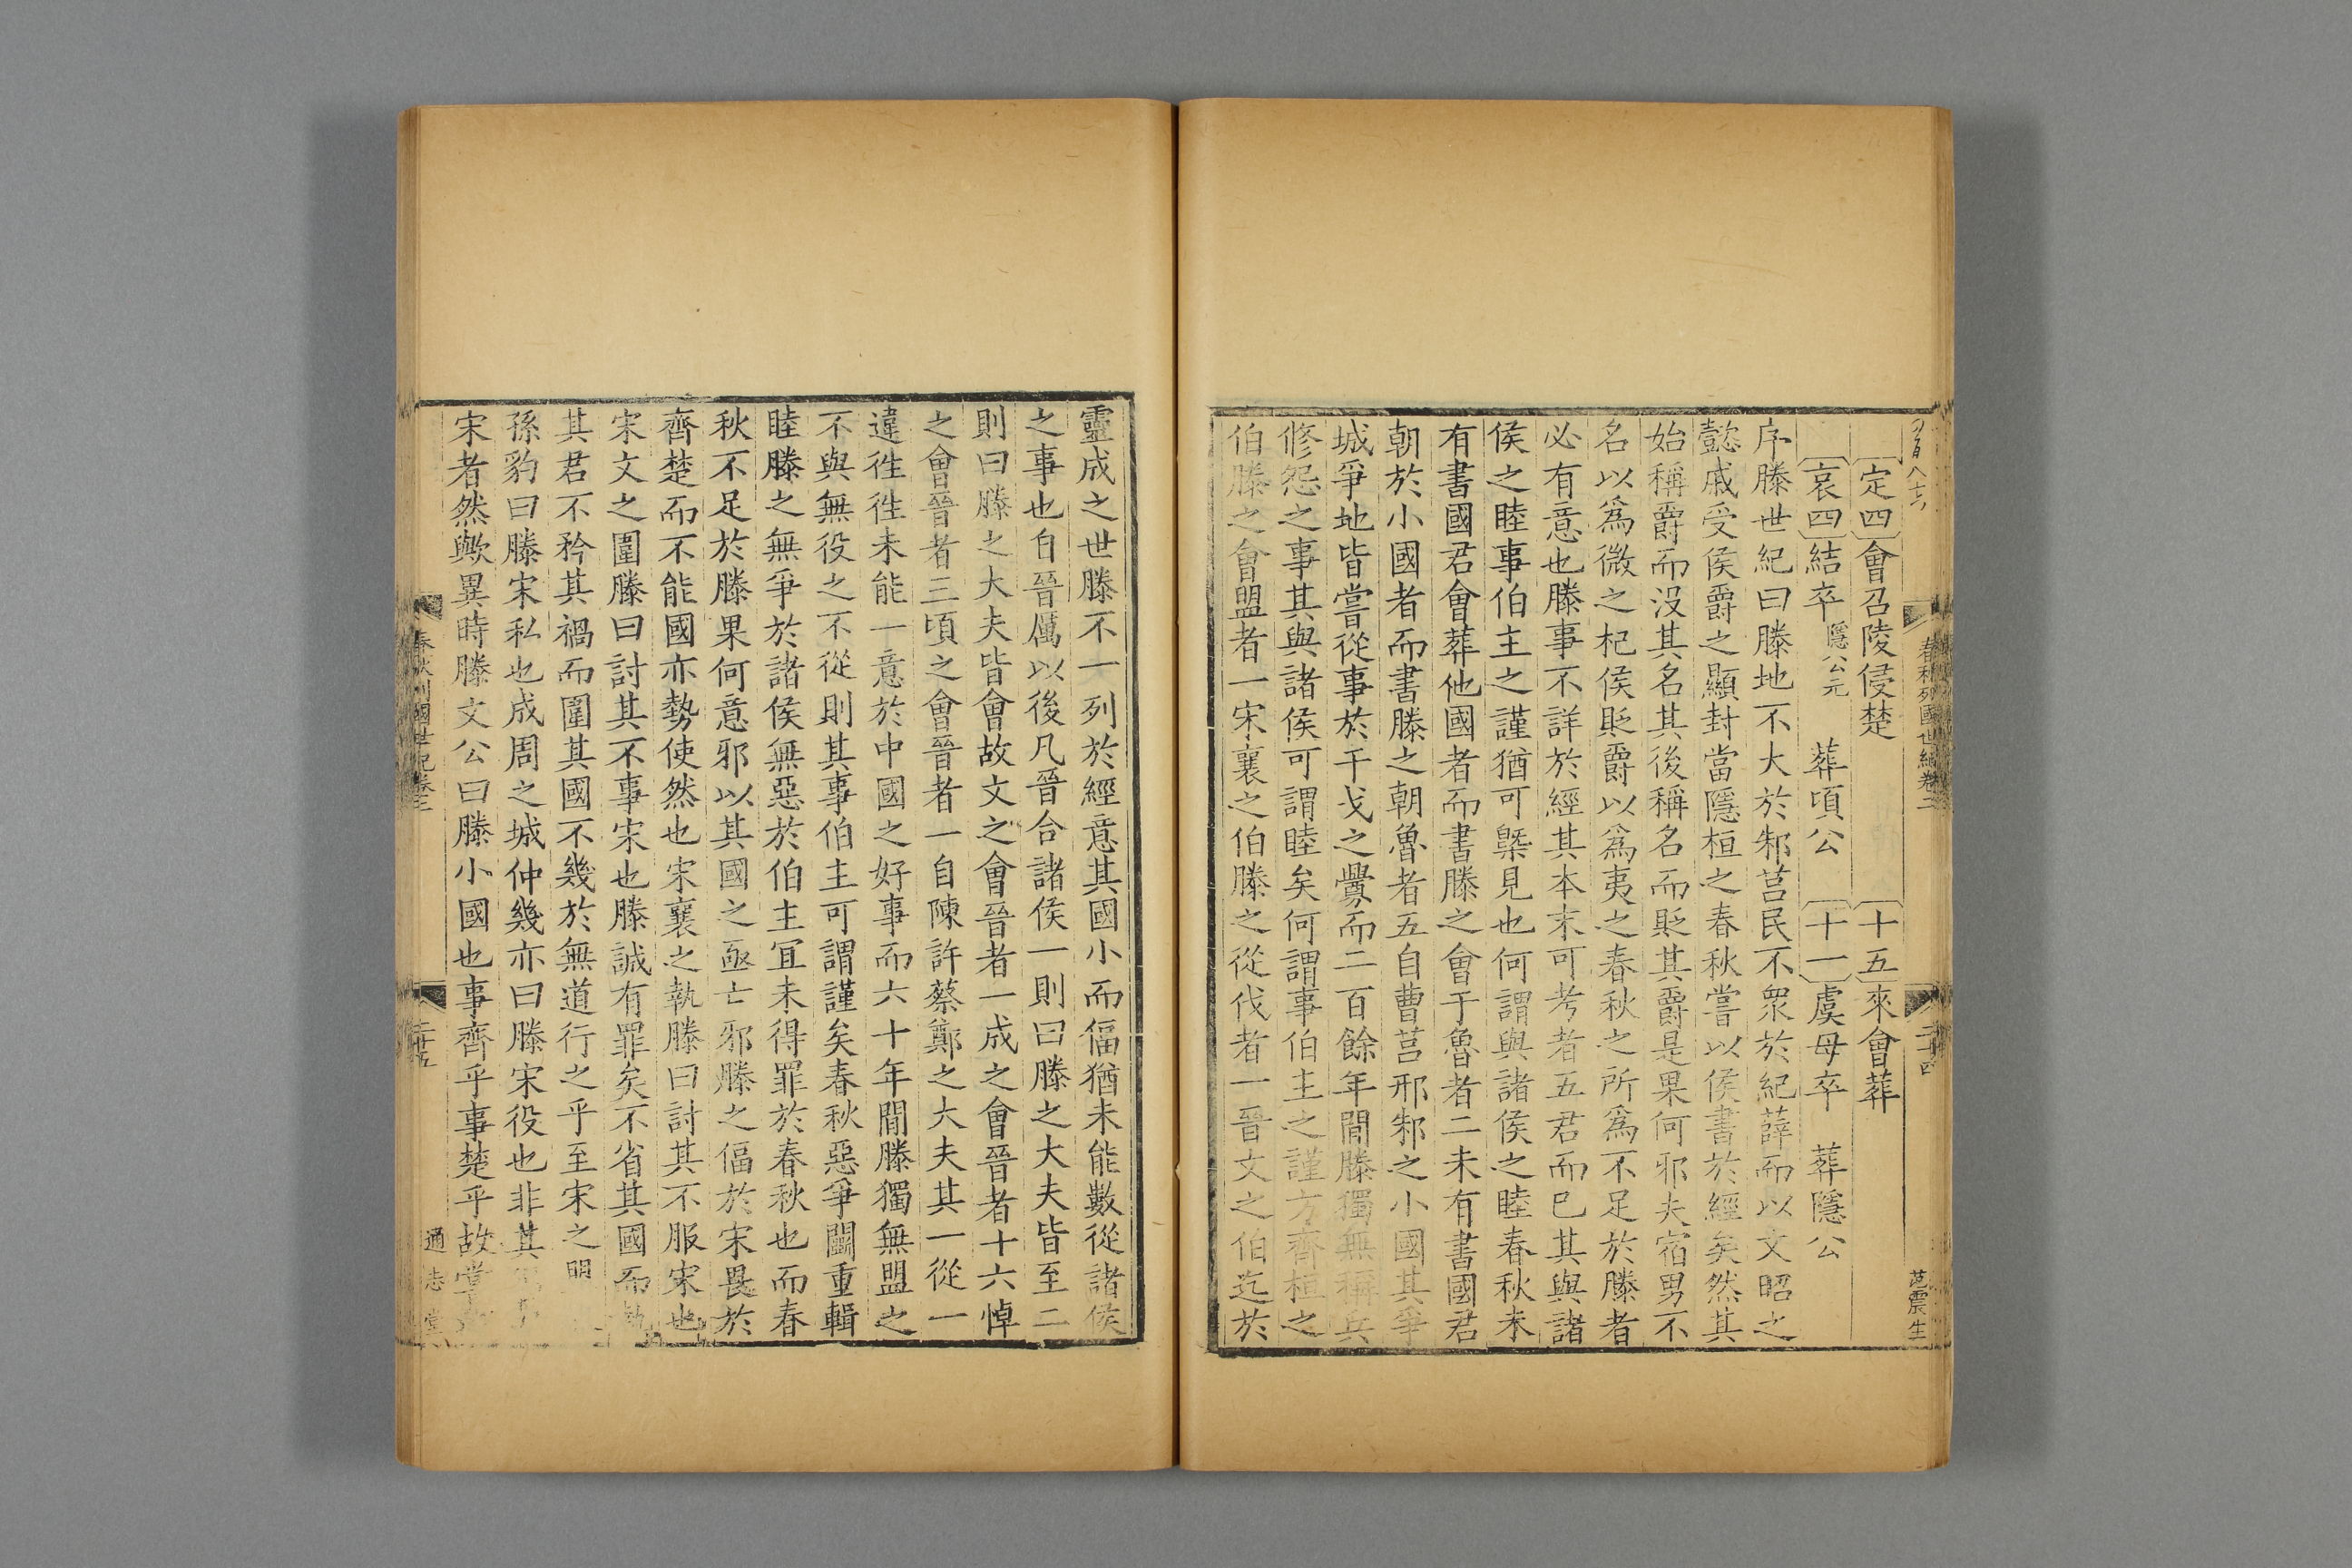 春秋列國世紀卷二
二十四
范震生
定四會召陵侵楚 十五來會葬
哀四結卒隱公元 葬頃公 十一虞母卒 葬隱公
序滕世紀曰滕地不大於邾莒民不衆於紀薛而以文昭之
懿戚受侯爵之顯封當隱桓之春秋嘗以侯書於經矣然其
始稱爵而沒其名其後稱名而貶其爵是果何邪夫宿男不
名以爲微之杞侯貶爵以爲夷之春秋之所爲不足於滕者
必有意也滕事不詳於經其本末可考者五君而巳其與諸
侯之睦事伯主之謹猶可槩見也何謂與諸侯之睦春秋未
有書國君會葬他國者而書滕之會于魯者二未有書國君
朝於小國者而書滕之朝魯者五自曹莒邢邾之小國其爭
城爭地皆嘗從事於干戈之釁而二百餘年間滕獨無稱兵
修怨之事其與諸侯可謂睦矣何謂事伯主之謹方齊桓之
伯滕之會盟者一宋襄之伯滕之從伐者一晉文之伯迄於
靈成之世滕不一列於經意其國小而偪猶未能數從諸侯
之事也自晉厲以後凡晉合諸侯一則曰滕之大夫皆至二
則曰滕之大夫皆會故文之會晉者一成之會晉者十六悼
之會晉者三頃之會晉者一自陳許蔡鄭之大夫其一從一
違徃徃未能一意於中國之好事而六十年間滕獨無盟之
不與無役之不從則其事伯主可謂謹矣春秋惡爭鬭重輯
睦滕之無爭於諸侯無惡於伯主宜未得罪於春秋也而春
秋不足於滕果何意邪以其國之亟亡邪滕之偪於宋畏於
齊楚而不能國亦勢使然也宋襄之執滕曰討其不服宋也
宋文之圍滕曰討其不事宋也滕誠有罪矣不省其國而執
其君不矜其禍而圍其國不幾於無道行之乎至宋之明
孫豹曰滕宋私也成周之城仲幾亦曰滕宋役也非其
宋者然歟異時滕文公曰滕小國也事齊乎事楚乎故嘗
春秋列國世紀卷二
二十五
通志堂